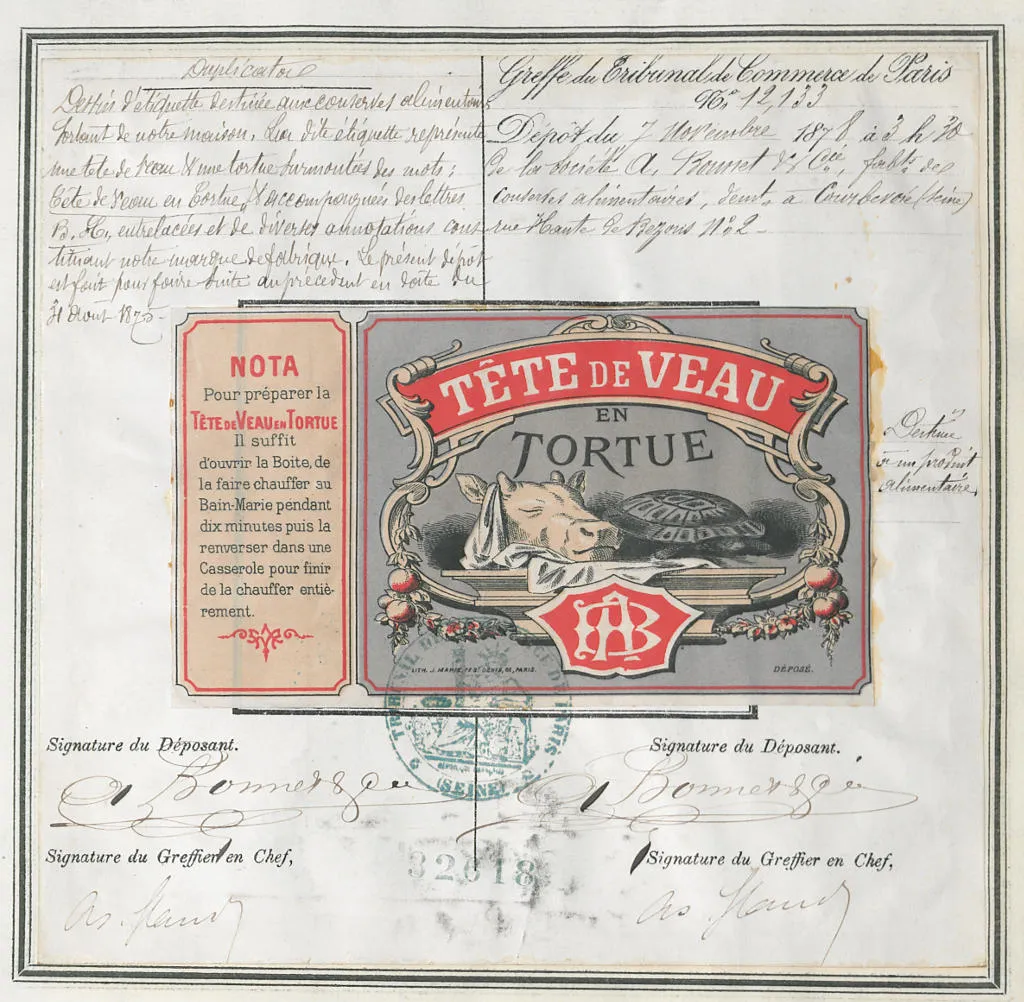 Duplicata
Dessin d'étiquette destinée aux conserves alimentaires
sortant de notre maison. La dite étiquette représente
une tête de veau & une tortue surmontées des mots :
Tête de Veau en Tortue, & accompagnées des lettres
entrelacées et de diverses annotations cons
tituant notre marque de fabrique. Le présent dépôt
est fait pour faire suite au précédent en date du
Août 187
Greffe du Tribunal de Commerce de Paris
No. 12,133
Dépôt du 7 Novembre 1878 à 3 h 30
De la société A. Bonnet & Cie, fabts. de
conserves alimentaires, demt. à Courbevoie (Seine)
rue Haute de Bezons No. 2
NOTA
Pour préparer la
TÊTE DE VEAU EN TORTUE
Il suffit
d'ouvrir la Boite, de
la faire chauffer au
Bain-Marie pendant
dix minutes puis la
renverser dans une
Casserole pour finir
de la chauffer entiè-
rement.
TÊTE DE VEAU
EN
TORTUE
AB
DÉPOSÉ.
Destiné
à un produit
alimentaire
DE PARIS
(SEINE)
Signature du Déposant.
Signature du Déposant.
A Bonnet & Cie
A Bonnet & Cie
Signature du Greffier en Chef,
Signature du Greffier en Chef,
32618